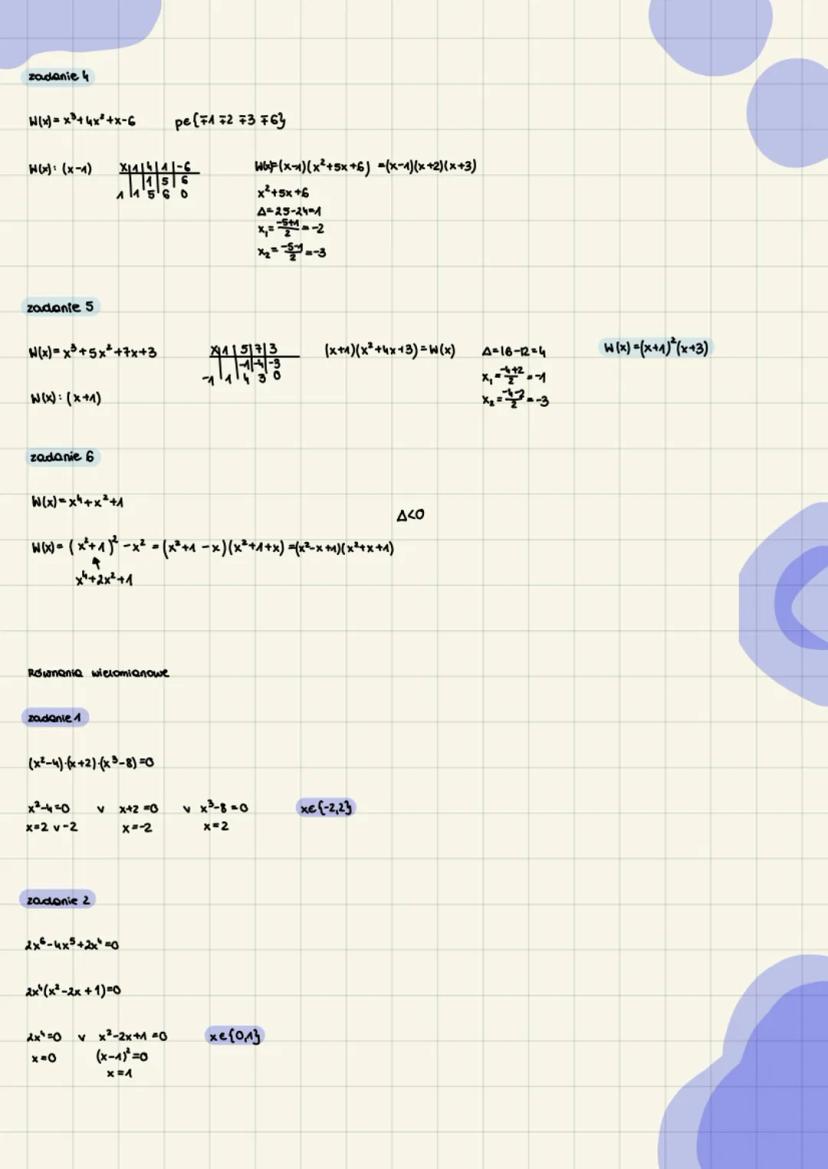 zadanie 4
W(x)= x³+4x²+x-6 p∈{∓1 ∓2 ∓3 ∓6}
W(x): (x-1)
X|1|4|1|-6
| |1|5|6
1 |1 5 6 0
W(x)=(x-1)(x²+5x+6) =(x-1)(x+2)(x+3)
x²+5x+6
Δ=25-24=1
x₁= (-5+1)/2 = -2
x₂= (-5-1)/2 = -3
zadanie 5
W(x)= x³+5x²+7x+3
W(x): (x+1)
X|1|5|7|3
| |-1|-4|-3
-1 | 1 4 3 0
(x+1)(x²+4x+3)=W(x)
Δ=16-12=4
x₁= (-4+2)/2 = -1
x₂= (-4-2)/2 = -3
W(x)=(x+1)²(x+3)
zadanie 6
W(x)= x⁴+x²+1
Δ<0
W(x)= (x²+1)² -x² = (x²+1 -x)(x²+1+x) =(x²-x+1)(x²+x+1)
x⁴+2x²+1
Równania wielomianowe
zadanie 1
(x²-4)·(x+2)·(x³-8)=0
x²-4=0 v x+2=0 v x³-8=0 x∈{-2,2}
x=2 v -2 x=-2 x=2
zadanie 2
2x⁶-4x⁵+2x⁴=0
2x⁴(x²-2x+1)=0
2x⁴=0 v x²-2x+1=0 x∈{0,1}
x=0 (x-1)²=0
x=1